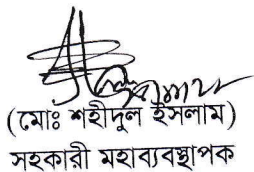 (মোঃ শহীদুল ইসলাম)
সহকারী মহাব্যবস্থাপক